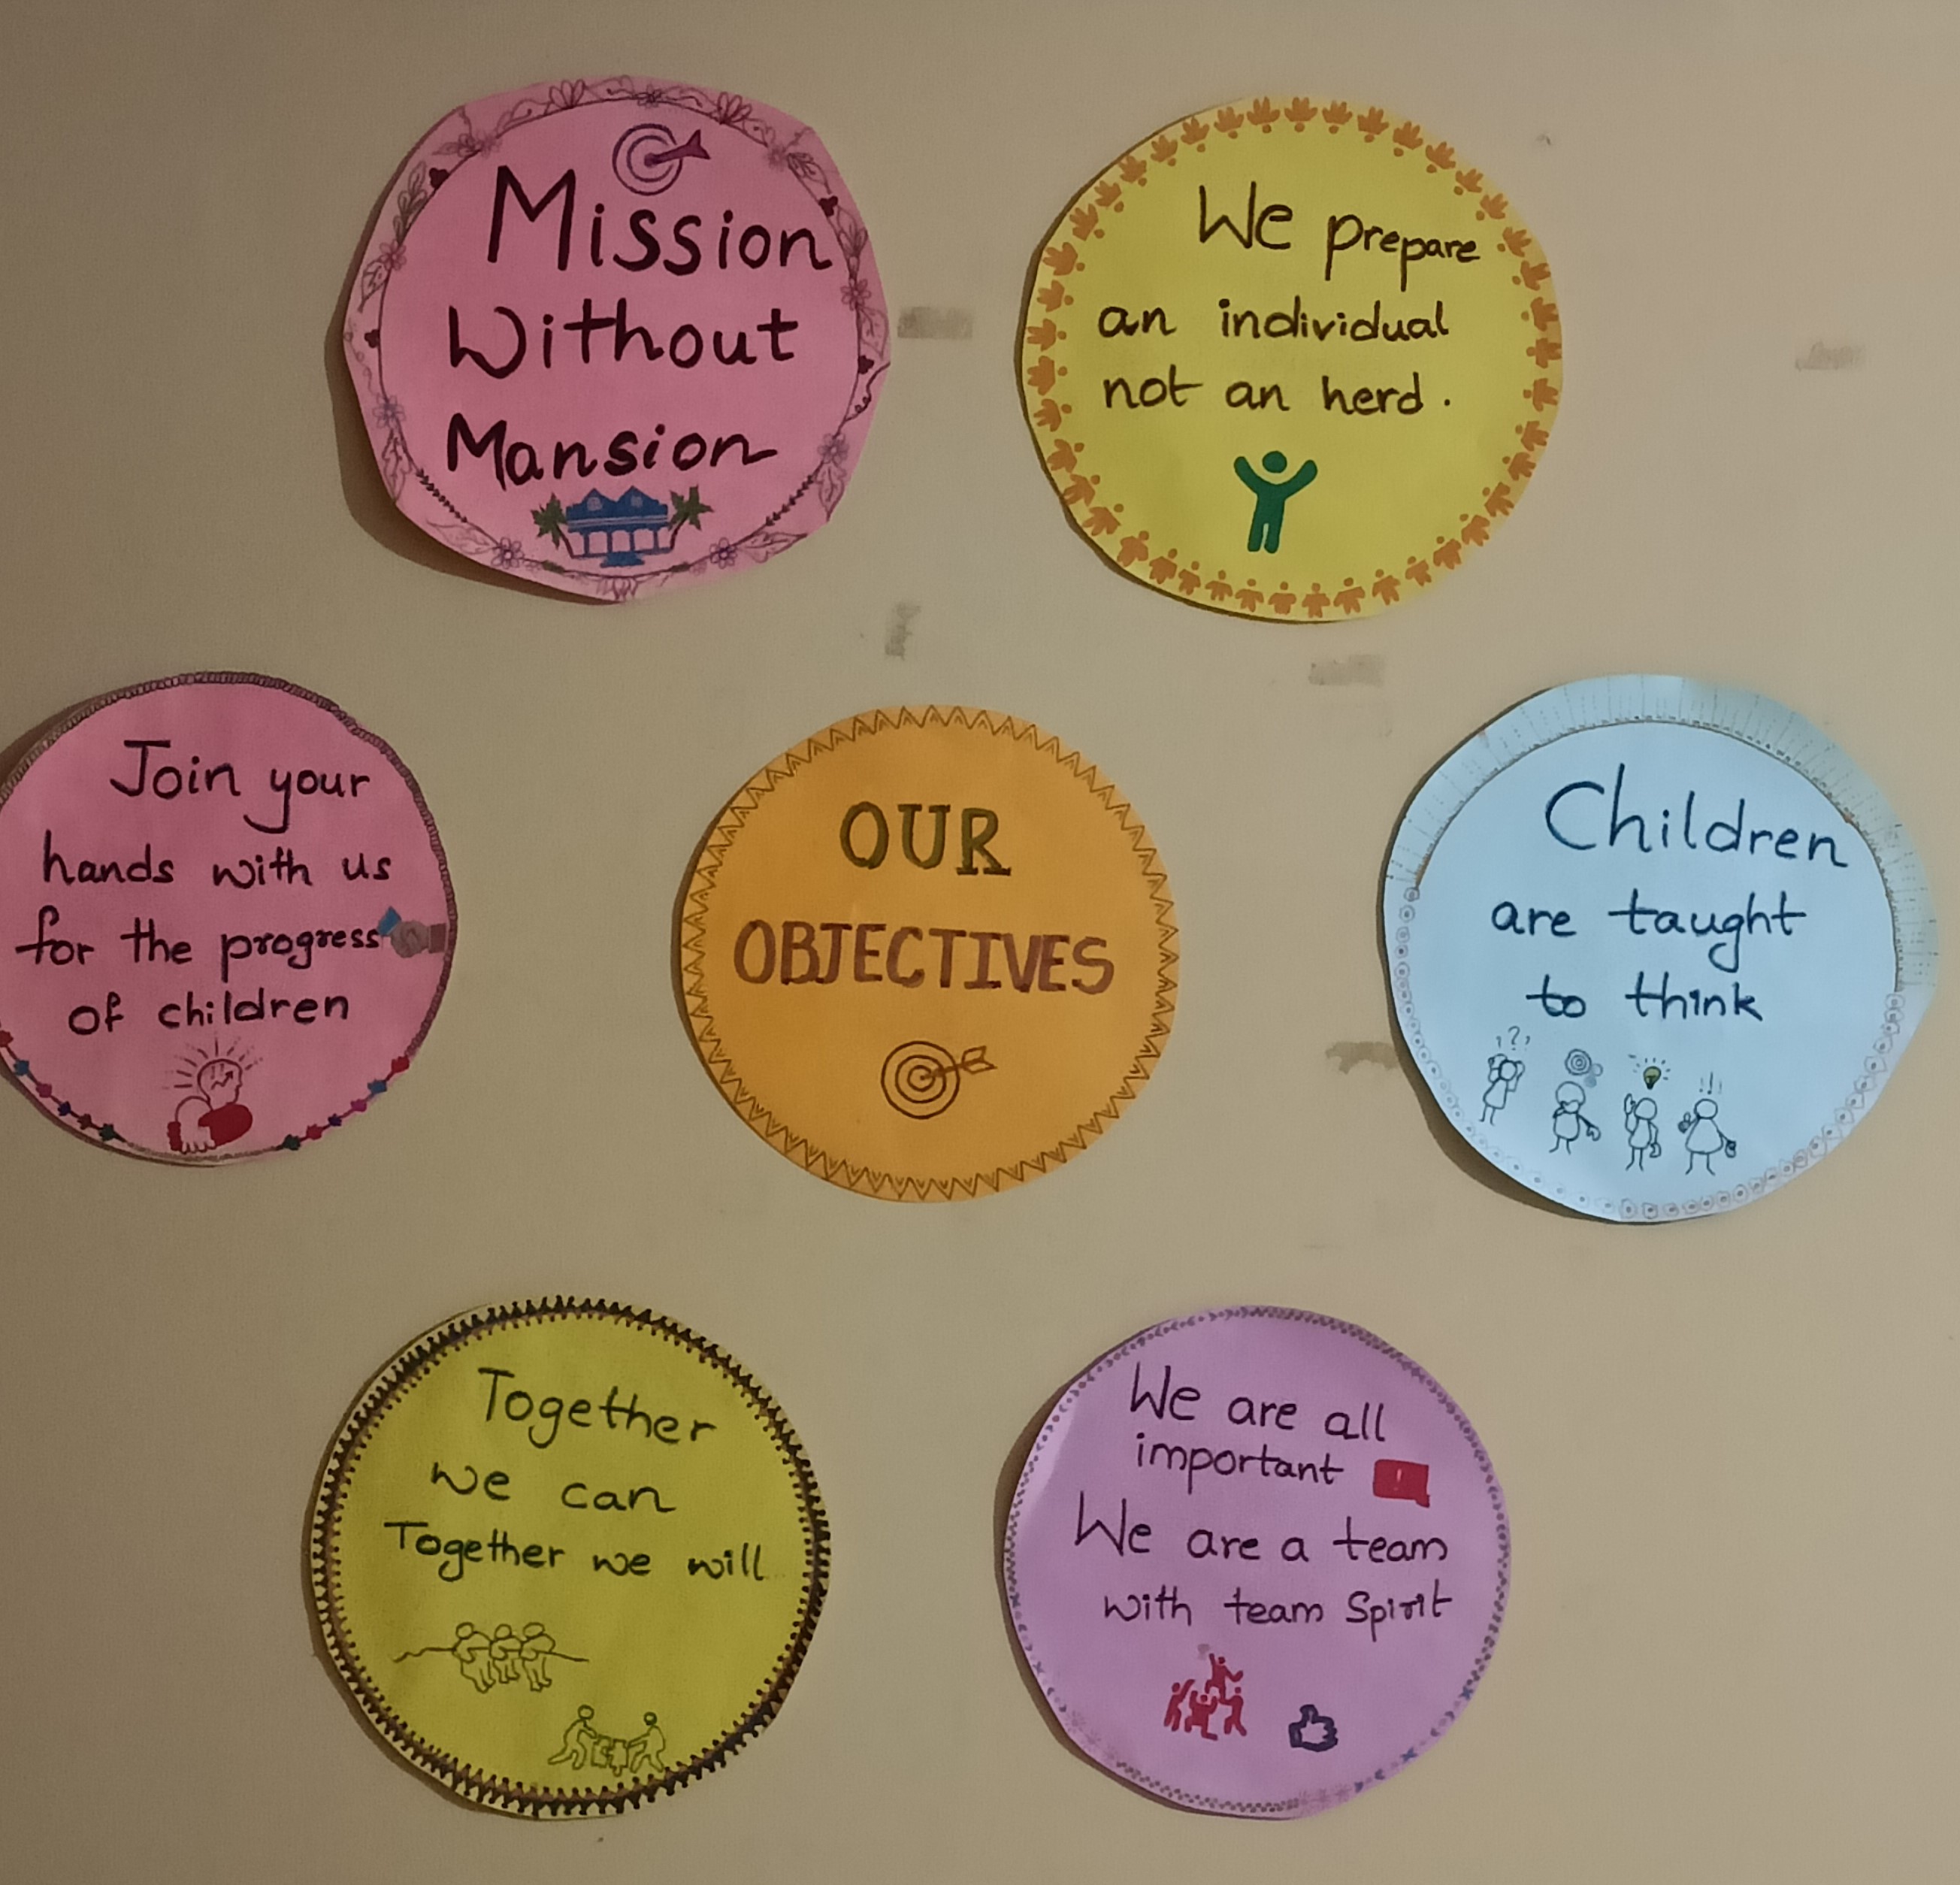 Mission
Without
Mansion
We prepare
an individual
not an herd.
Join your
hands with us
for the progress
of children
OUR
OBJECTIVES
Children
are taught
to think
???
!!
Together
we can
Together we will
We are all
important !
We are a team
with team Spirit